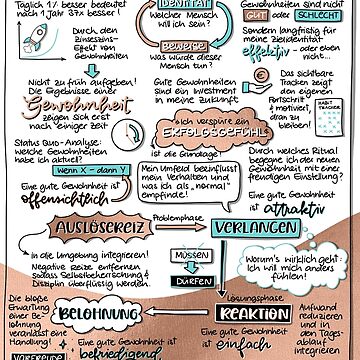 Täglich 1% besser bedeutet
nach 1 Jahr 37x besser!
IDENTITÄT
Welcher Mensch
will ich sein?
BEWEISE
Was würde dieser
Mensch tun?
Gewohnheiten sind nicht
GUT oder SCHLECHT
Sondern langfristig für
meine Zielidentität
effektiv - oder eben
nicht...
Durch den
Zinseszins-
Effekt von
Gewohnheiten
Nicht zu früh aufgeben!
Die Ergebnisse einer
Gewohnheit
zeigen sich erst
nach einiger Zeit
Gute Gewohnheiten
sind ein Investment
in meine Zukunft
Das sichtbare
Tracken zeigt
den eigenen
Fortschritt
& motiviert
dran zu
bleiben!
HABIT
TRACKER
Ich verspüre ein
ERFOLGSGEFÜHL
ist die Grundlage!
Status Quo-Analyse:
welche Gewohnheiten
habe ich aktuell?
Wenn X - dann Y
Eine gute Gewohnheit ist
offensichtlich
Mein Umfeld beeinflusst
mein Verhalten und
was ich als „normal"
empfinde!
Durch welches Ritual
begegne ich der neuen
Gewohnheit mit einer
freudigen Einstellung?
Eine gute Gewohnheit
ist attraktiv
AUSLÖSEREIZ
Problemphase
VERLANGEN
in die Umgebung integrieren!
Negative Reize entfernen
sodass Selbstbeherrschung &
Disziplin überflüssig werden.
MÜSSEN
DÜRFEN
Worum's wirklich geht:
Ich will mich anders
fühlen!
Die bloße
Erwartung
einer Be-
lohnung
veranlasst eine
Handlung!
VORFREUDE
BELOHNUNG
Lösungsphase
REAKTION
Aufwand
reduzieren
und in den
Tages-
ablauf
integrieren
Eine gute Gewohnheit
ist befriedigend
Eine gute Gewohnheit
ist einfach